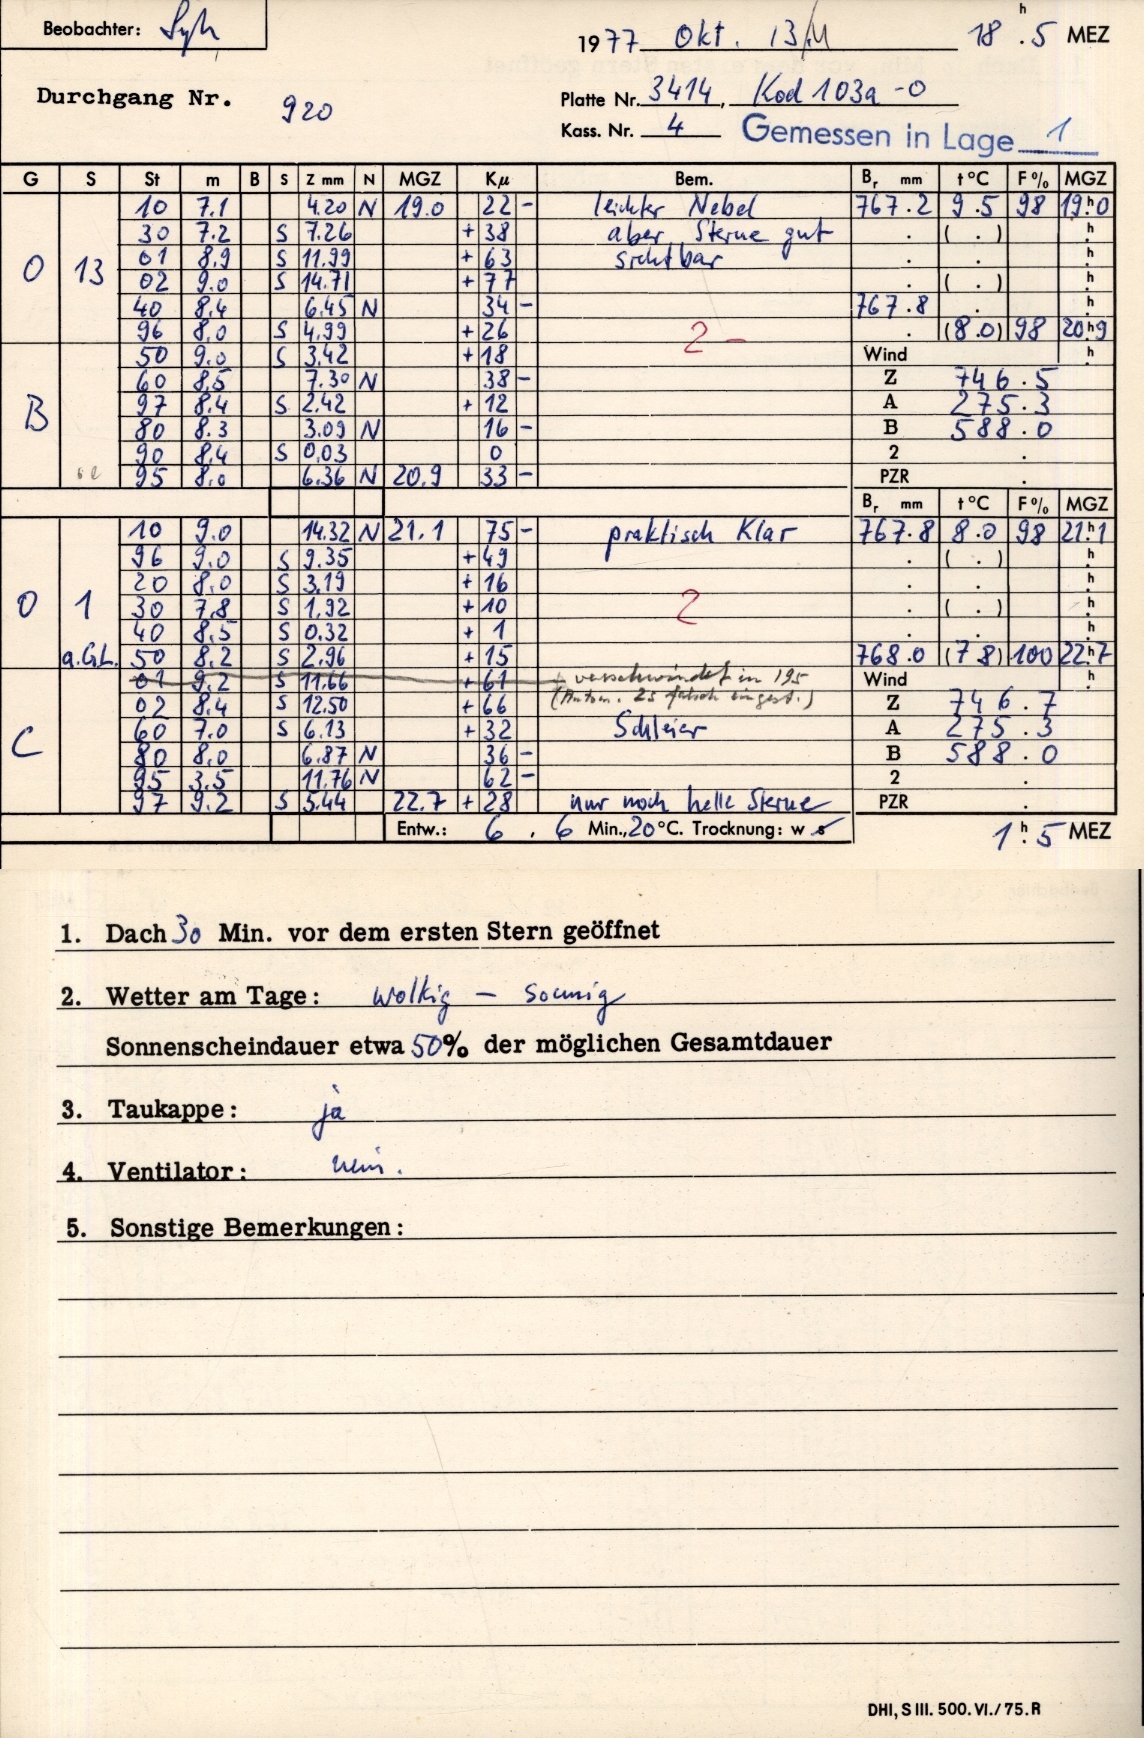 Beobachter:
1977 Okt. 13/14 18h.5 MEZ
Durchgang Nr. 920
Platte Nr. 3414, Kod 103a-O
Kass. Nr. 4 Gemessen in Lage 1
G S St m B S Z mm N MGZ Kμ Bem. Br mm t°C F% MGZ
10 7.1 4.20 N 19.0 22 - leichter Nebel 767.2 9.5 98 19h0
30 7.2 S 7.26 + 38 aber Sterne gut . ( . ) h
O 13 01 8.9 S 11.99 + 63 sichtbar . . h
02 9.0 S 14.71 + 77 . ( . ) h
40 8.4 6.45 N 34 - 767.8 . h
96 8.0 S 4.99 + 26 2 - . (8.0) 98 20h9
50 9.0 S 3.42 + 18 Wind h
60 8.5 7.30 N 38 - Z 746.5
B 97 8.4 S 2.42 + 12 A 275.3
80 8.3 3.09 N 16 - B 588.0
90 8.4 S 0.03 0 2 .
95 8.0 6.36 N 20.9 33 - PZR .
Br mm t°C F% MGZ
10 9.0 14.32 N 21.1 75 - praktisch klar 767.8 8.0 98 21h1
96 9.0 S 9.35 + 49 . ( . ) h
20 8.0 S 3.19 + 16 . . h
O 1 30 7.8 S 1.92 + 10 2 . ( . ) h
40 8.5 S 0.32 + 1 . . h
a.G.L. 50 8.2 S 2.96 + 15 768.0 (7.8) 100 22h7
01 9.2 S 11.66 + 61 verschwindet in 195 Wind h
02 8.4 S 12.50 + 66 (Autom. 2s falsch eingest.) Z 746.7
C 60 7.0 S 6.13 + 32 Schleier A 275.3
80 8.0 6.87 N 36 - B 588.0
95 3.5 11.76 N 62 - 2 .
97 9.2 S 5.44 22.7 + 28 nur noch helle Sterne PZR .
Entw.: 6 , 6 Min., 20°C. Trocknung: w s 1h.5 MEZ
1. Dach 30 Min. vor dem ersten Stern geöffnet
2. Wetter am Tage: wolkig - sonnig
Sonnenscheindauer etwa 50% der möglichen Gesamtdauer
3. Taukappe: ja
4. Ventilator: nein.
5. Sonstige Bemerkungen:
DHI, S III. 500. VI./75. R